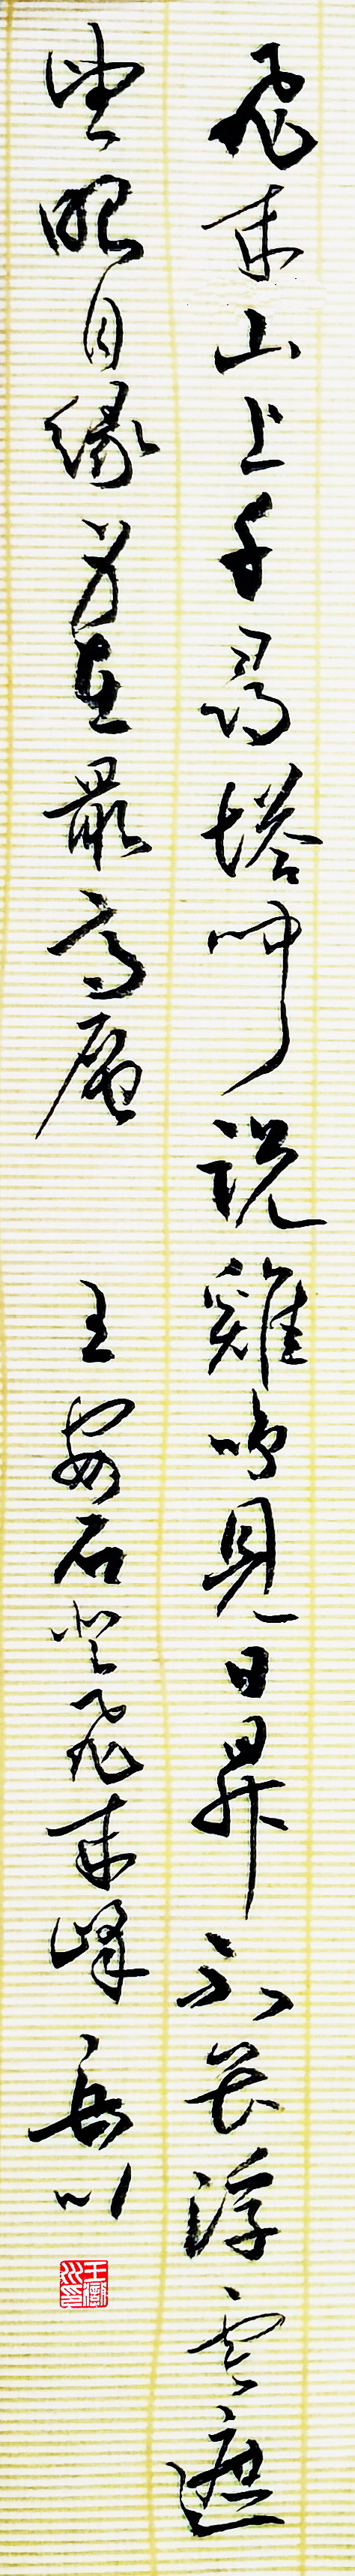 飛來山上千尋塔聞說雞鳴見日昇不畏浮雲遮
望眼自緣身在最高層 王安石登飛來峰 岳川
王嶽川印